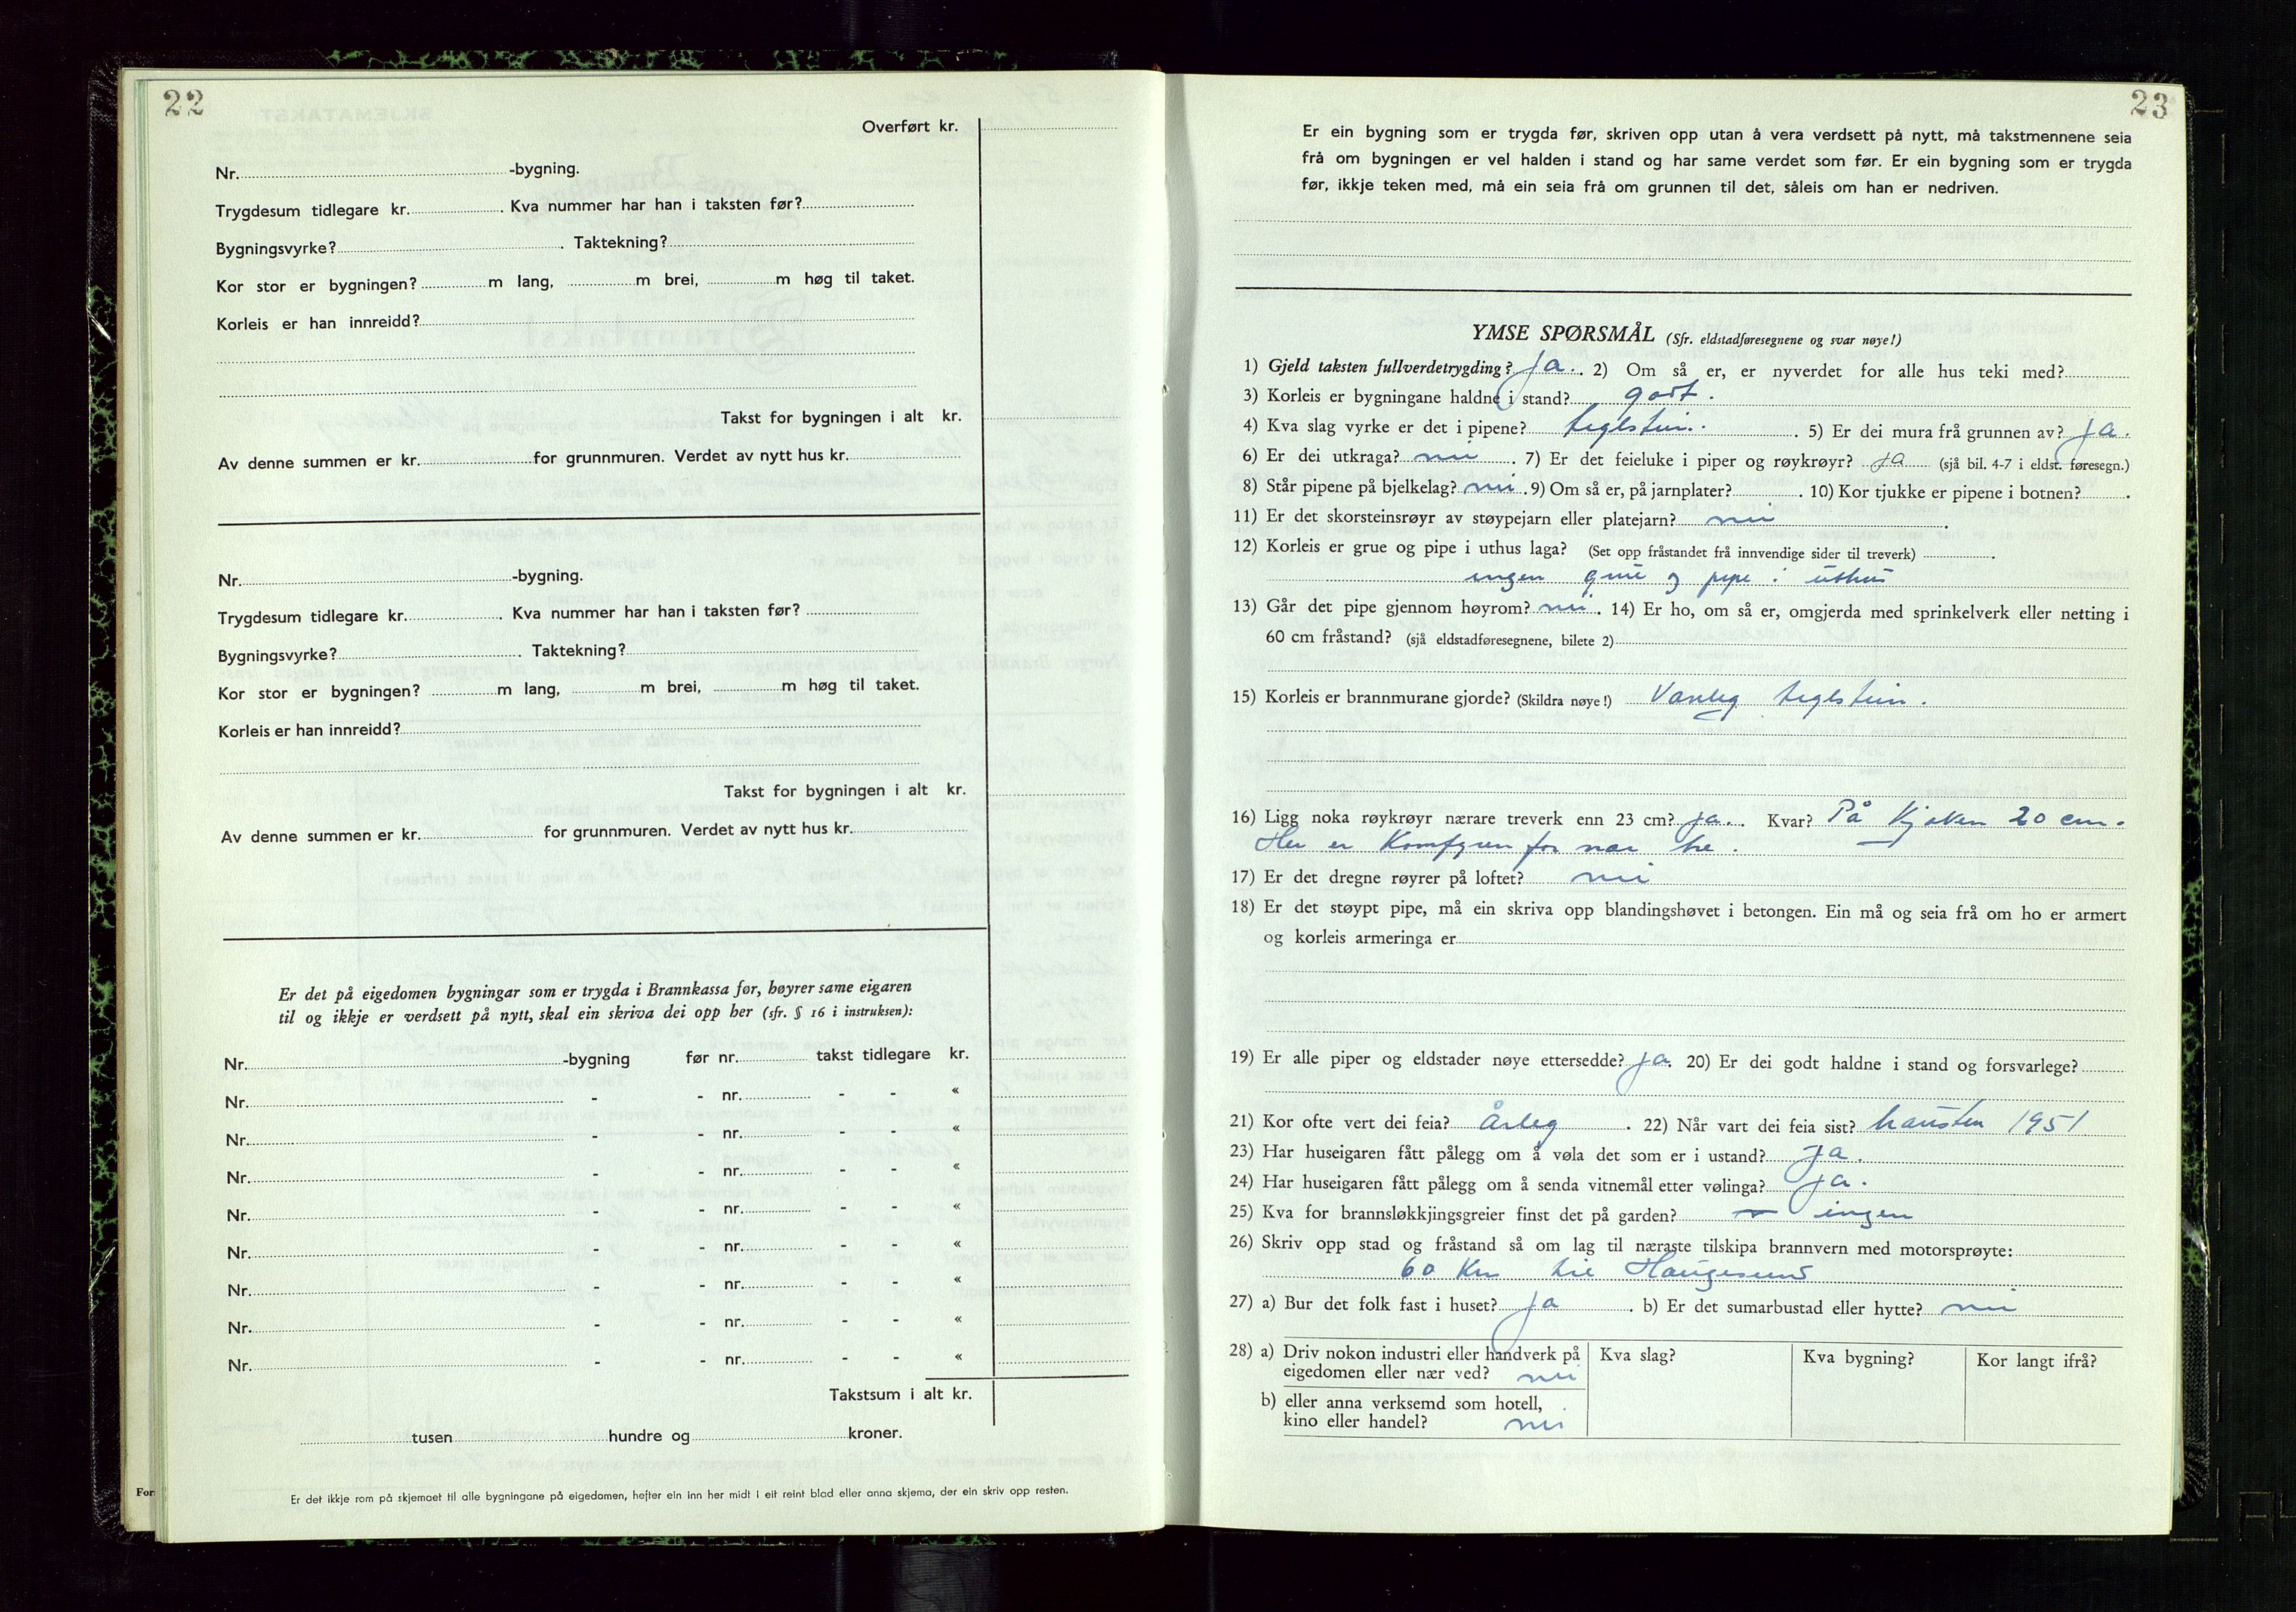 22
Overført kr.
Nr. -bygning.
Trygdesum tidlegare kr. . Kva nummer har han i taksten før?
Bygningsvyrke? . Taktekning?
Kor stor er bygningen? m lang, m brei, m høg til taket.
Korleis er han innreidd?
Takst for bygningen i alt kr.
Av denne summen er kr. for grunnmuren. Verdet av nytt hus kr.
Nr. -bygning.
Trygdesum tidlegare kr. . Kva nummer har han i taksten før?
Bygningsvyrke? . Taktekning?
Kor stor er bygningen? m lang, m brei, m høg til taket.
Korleis er han innreidd?
Takst for bygningen i alt kr.
Av denne summen er kr. for grunnmuren. Verdet av nytt hus kr.
Er det på eigedomen bygningar som er trygda i Brannkassa før, høyrer same eigaren
til og ikkje er verdsett på nytt, skal ein skriva dei opp her (sfr. § 16 i instruksen):
Nr. -bygning før nr. takst tidlegare kr.
Nr. - - nr. - - «
Nr. - - nr. - - «
Nr. - - nr. - - «
Nr. - - nr. - - «
Nr. - - nr. - - «
Nr. - - nr. - - «
Nr. - - nr. - - «
Nr. - - nr. - - «
Takstsum i alt kr.
tusen hundre og kroner.
For
Er det ikkje rom på skjemaet til alle bygningane på eigedomen, hefter ein inn her midt i eit reint blad eller anna skjema, der ein skriv opp resten.
23
Er ein bygning som er trygda før, skriven opp utan å vera verdsett på nytt, må takstmennene seia
frå om bygningen er vel halden i stand og har same verdet som før. Er ein bygning som er trygda
før, ikkje teken med, må ein seia frå om grunnen til det, såleis om han er nedriven.
YMSE SPØRSMÅL (Sfr. eldstadføresegnene og svar nøye!)
1) Gjeld taksten fullverdetrygding? ja. 2) Om så er, er nyverdet for alle hus teki med?
3) Korleis er bygningane haldne i stand? godt.
4) Kva slag vyrke er det i pipene? teglstein. 5) Er dei mura frå grunnen av? ja.
6) Er dei utkraga? nei . 7) Er det feieluke i piper og røykrøyr? ja (sjå bil. 4-7 i eldst. føresegn.)
8) Står pipene på bjelkelag? nei . 9) Om så er, på jarnplater? . 10) Kor tjukke er pipene i botnen? .
11) Er det skorsteinsrøyr av støypejarn eller platejarn? nei .
12) Korleis er grue og pipe i uthus laga? (Set opp fråstandet frå innvendige sider til treverk) .
ingen grue og pipe i uthus
13) Går det pipe gjennom høyrom? nei . 14) Er ho, om så er, omgjerda med sprinkelverk eller netting i
60 cm fråstand? (sjå eldstadføresegnene, bilete 2)
15) Korleis er brannmurane gjorde? (Skildra nøye!) Vanleg teglstein.
16) Ligg noka røykrøyr nærare treverk enn 23 cm? ja. Kvar? På kjøken 20 cm.
Her er Komfyren for nær tre.
17) Er det dregne røyrer på loftet? nei
18) Er det støypt pipe, må ein skriva opp blandingshøvet i betongen. Ein må og seia frå om ho er armert
og korleis armeringa er
19) Er alle piper og eldstader nøye ettersedde? ja. 20) Er dei godt haldne i stand og forsvarlege?
21) Kor ofte vert dei feia? Årleg . 22) Når vart dei feia sist? hausten 1951
23) Har huseigaren fått pålegg om å vøla det som er i ustand? ja.
24) Har huseigaren fått pålegg om å senda vitnemål etter vølinga? ja.
25) Kva for brannsløkkjingsgreier finst det på garden? ingen
26) Skriv opp stad og fråstand så om lag til næraste tilskipa brannvern med motorsprøyte:
60 Km til Haugesund
27) a) Bur det folk fast i huset? ja . b) Er det sumarbustad eller hytte? nei
28) a) Driv nokon industri eller handverk på Kva slag? Kva bygning? Kor langt ifrå?
eigedomen eller nær ved? nei
b) eller anna verksemd som hotell,
kino eller handel? nei